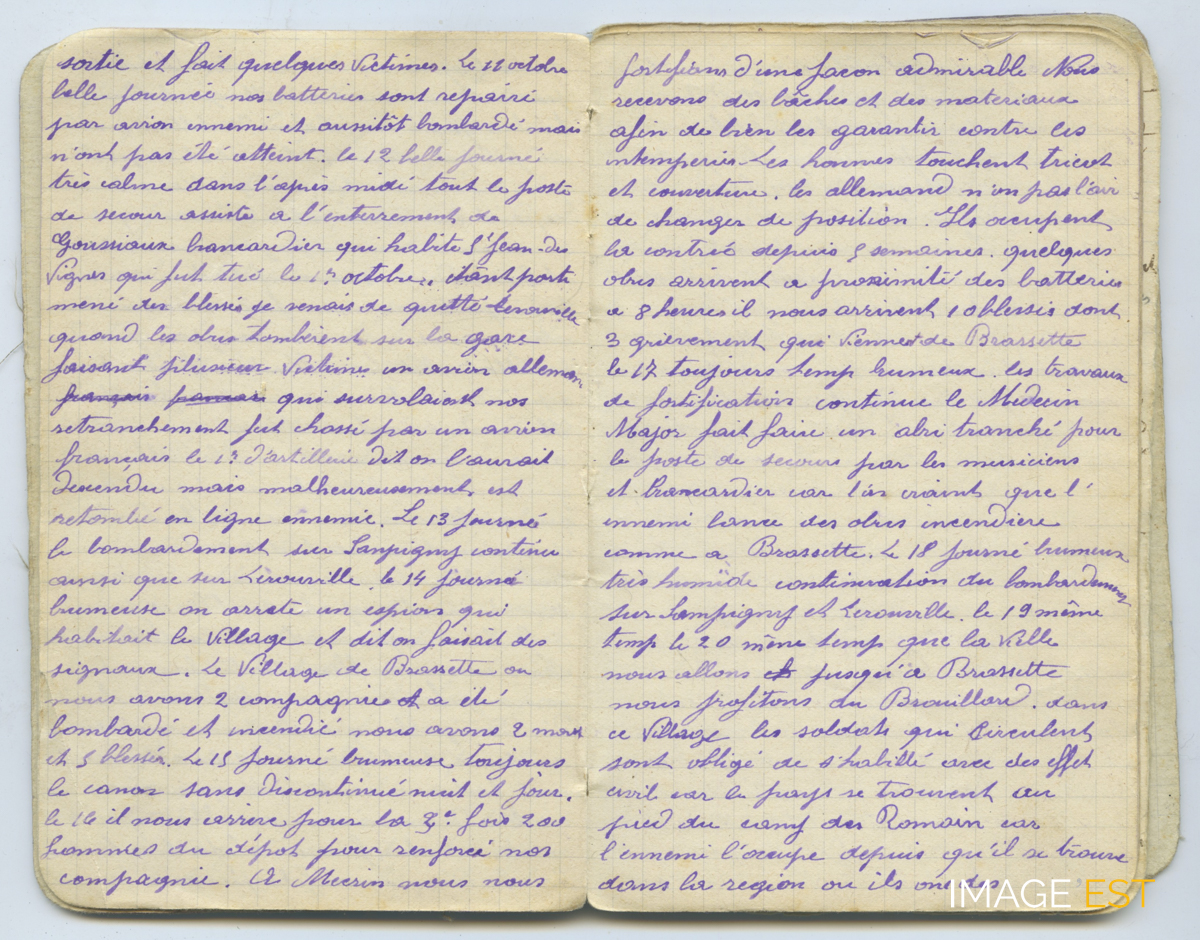 sortie et fait quelques victimes. Le 11 octobre
belle journée nos batteries sont repairé
par avion ennemi et aussitôt bombardé mais
n'ont pas été atteint. le 12 belle journé
très calme dans l'après midi tout le poste
de secour assiste a l'enterrement de
Goussiaux brancardier qui habite St Jean-des
Vignes qui fut tué le 1er octobre. étant
mené des blessé je venais de quitté Lerouville
quand les obus tombèrent sur la gare
faisant plusieur victimes un avion alleman
français qui survolaient nos
retranchement fut chassé par un avion
français le 13 d'artillerie dit on l'aurait
descendu mais malheureusement est
retombé en ligne ennemie. Le 13 journé
le bombardement sur Sanpigny continu
ainsi que sur Lerouville. le 14 journé
brumeuse on arrete un espion qui
habitait le village et dit on faisait des
signaux. Le Village de Brassette ou
nous avons 2 compagnie et a été
bombardé et incendié nous avons 2 morts
et 5 blessés. Le 15 journé brumeuse toujours
le canon sans discontinué nuit et jour.
le 16 il nous arrive pour la 2e fois 200
hommes du dépot pour renforcé nos
compagnie. A Mecrin nous nous
fortifians d'une facon admirable Nous
recevons des bâches et des materiaux
afin de bien les garantir contre les
intemperies. Les hommes touchent tricot
et couverture. les allemand n'on pas l'air
de changer de position. Ils ocupent
la contrée depuis 5 semaines. quelques
obus arrivent a proximité des batteries
a 8 heures il nous arrivent 10 blessés dont
3 grièvement qui viennet de Brassette
le 17 toujours temp brumeux. les travaux
de fortification continue le Medecin
Major fait faire un abri tranché pour
le poste de secours par les musiciens
et brancardier car l'on craint que l'
ennemi lance des obus incendiere
comme a Brassette. Le 18 journé brumeux
très humide continuation du bombardement
sur Sampigny et Lerouville. le 19 même
temp le 20 même temp que la veille
nous allons jusqu'a Brassette
nous profitons du Brouillard. dans
ce Village les soldats qui circulent
sont obligé de s'habillé avec des effet
civil car le pays se trouvent au
pied du camp des Romain car
l'ennemi l'occupe depuis qu'il se trouve
dans la region ou ils ont des
IMAGE EST